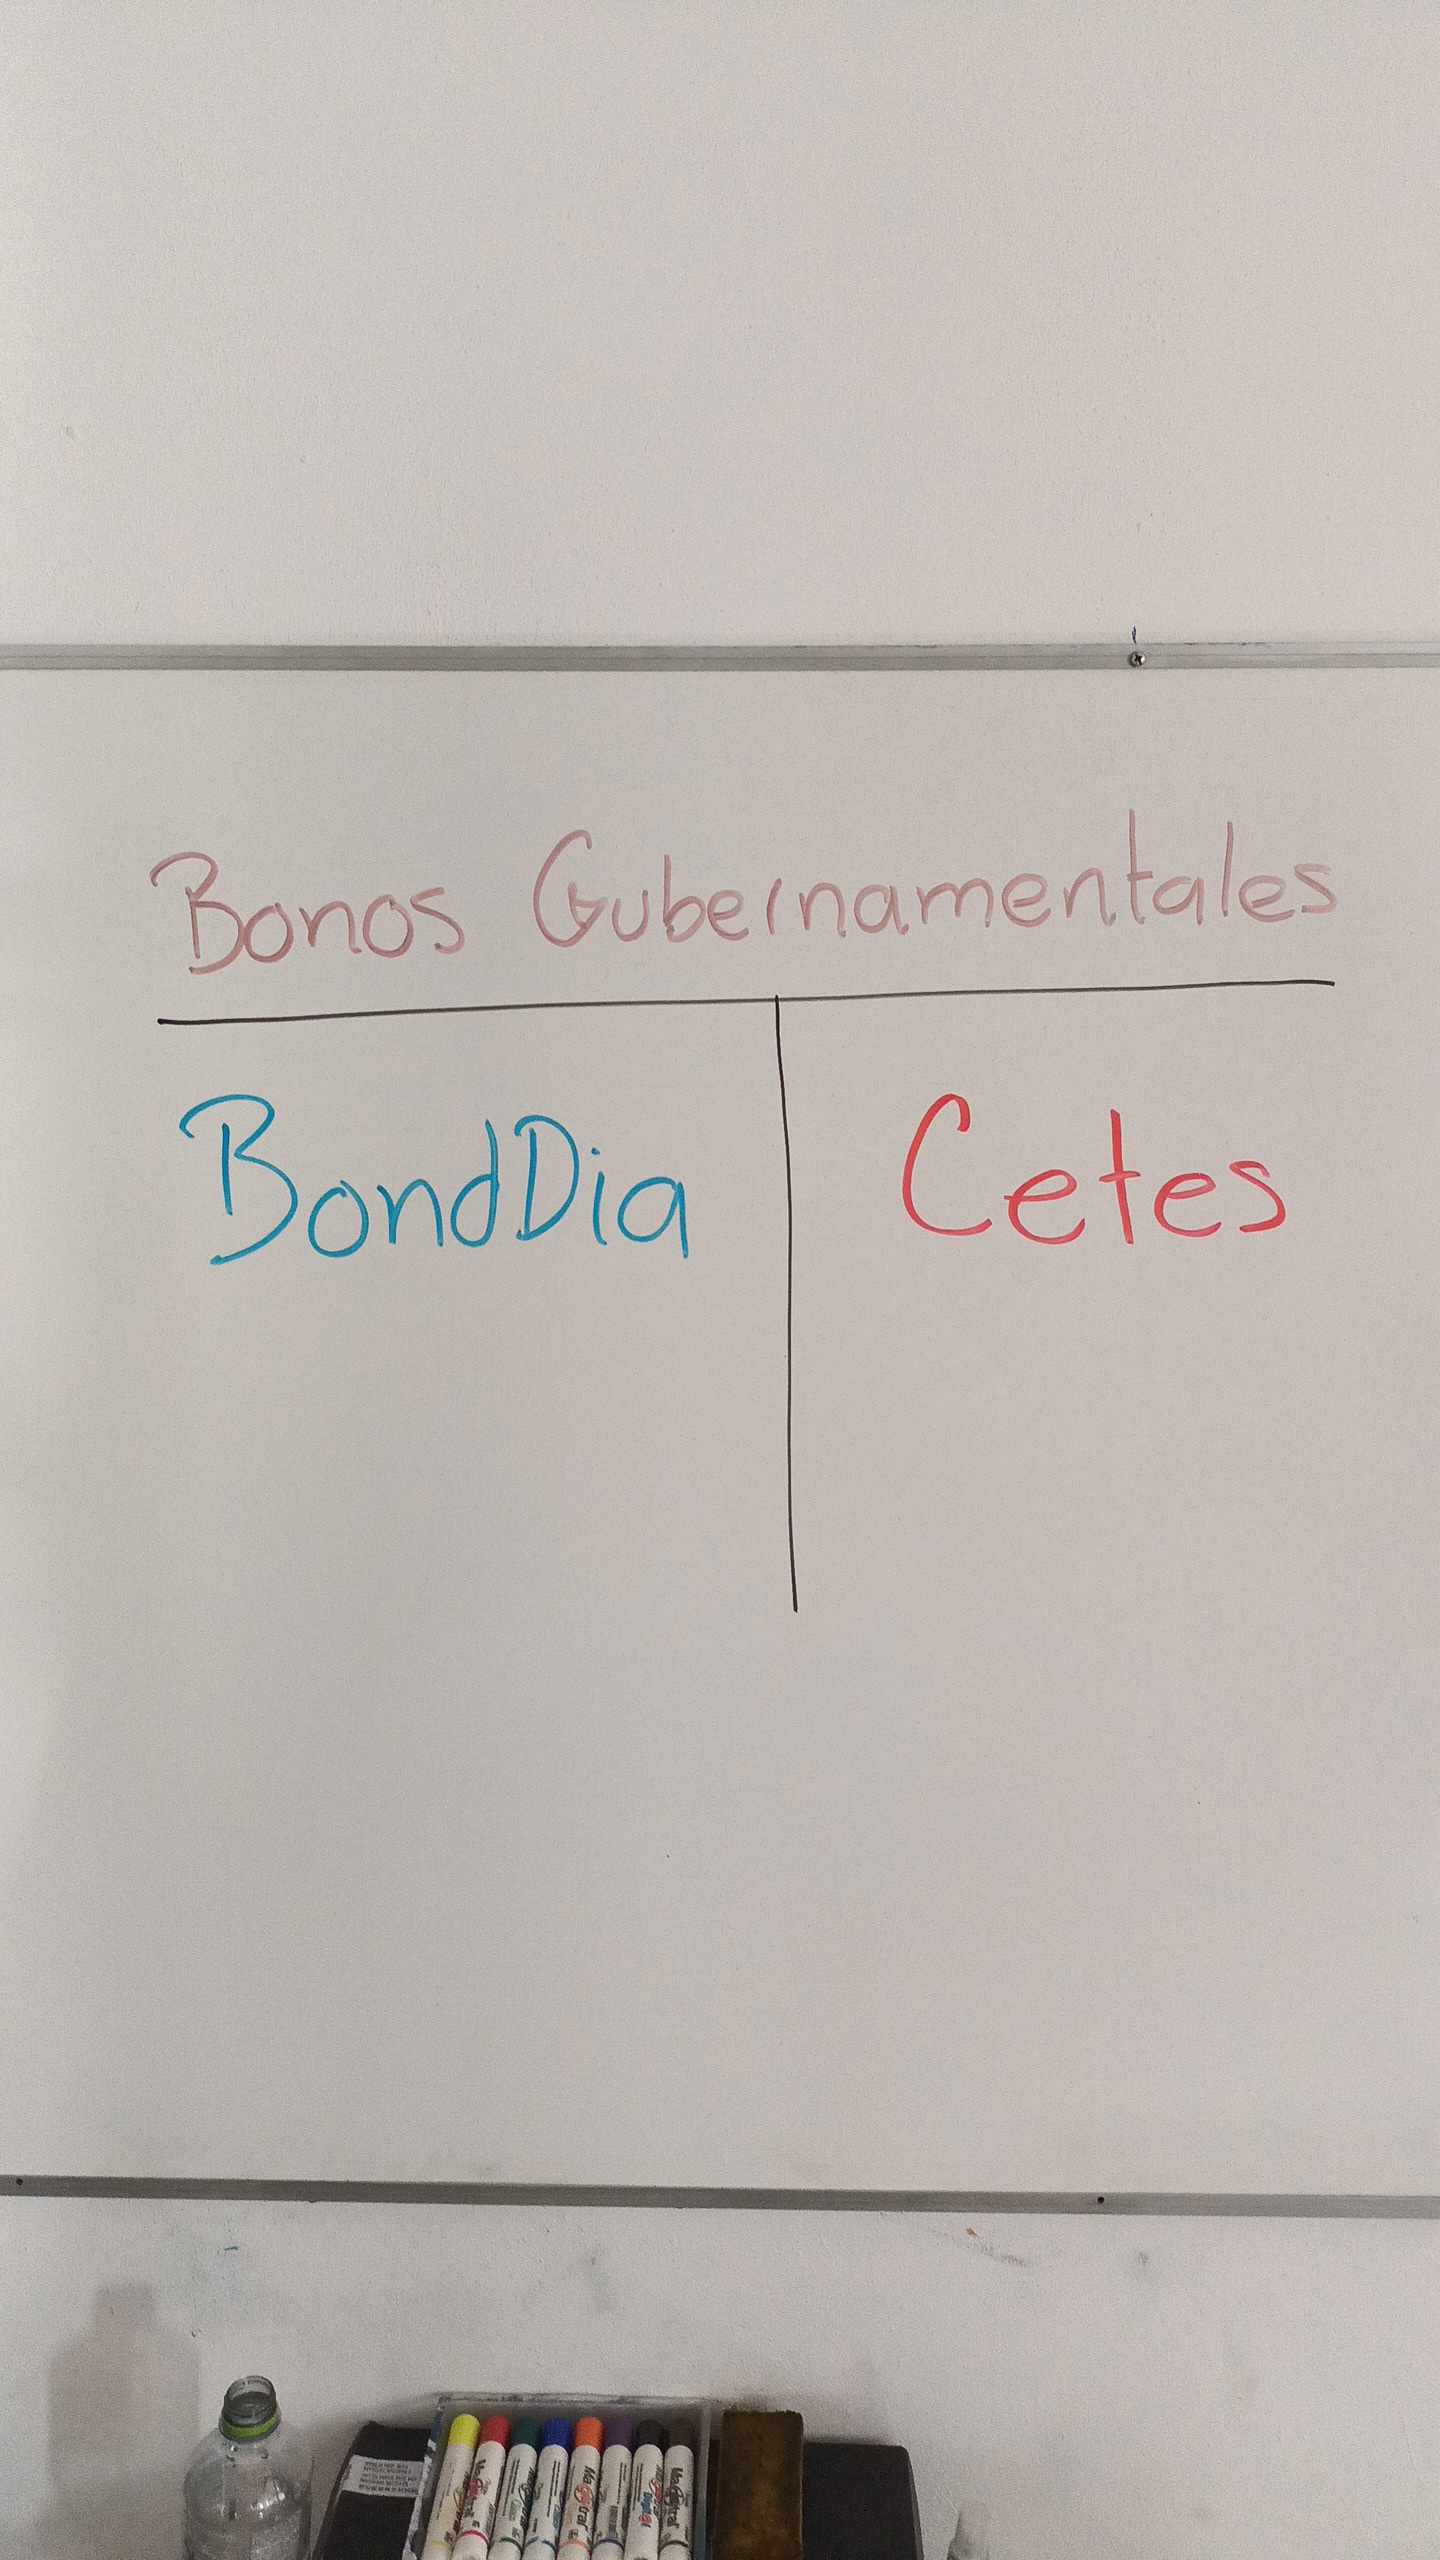 Bonos Gubernamentales
BondDia
Cetes
Magistral